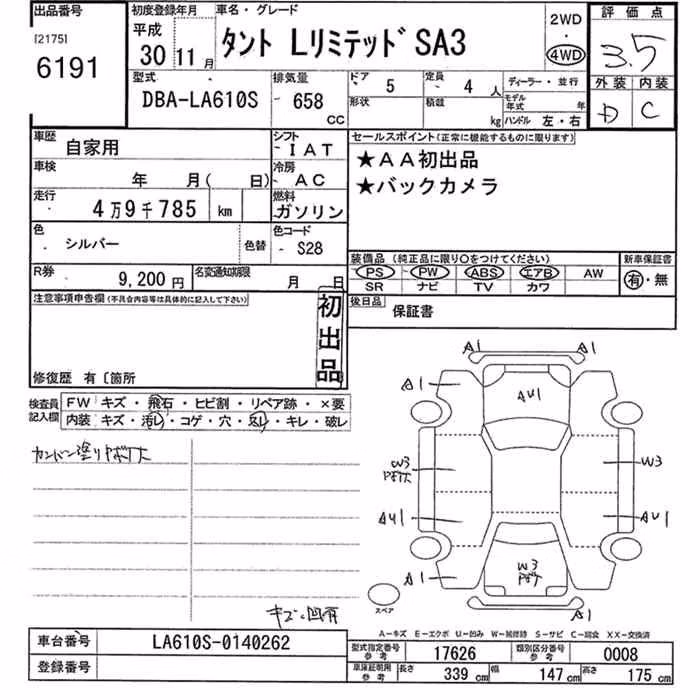 出品番号
[2175]
6191
初度登録年月
平成
30 11月
車名・グレード
タント Lリミテッド SA3
2WD
・
4WD
評価点
3.5
外装 内装
D C
型式
DBA-LA610S
排気量
658
CC
ドア
5
形状
定員
4 人
積載
kg
ディーラー・並行
モデル年式 年
ハンドル 左・右
車歴
自家用
シフト
IAT
車検
年 月( 日)
冷房
AC
走行
4万9千785 km
燃料
ガソリン
色
シルバー
色替
色コード
S28
R券
9,200 円
名変通知期限
月 日
セールスポイント(正常に機能するものに限ります)
★AA初出品
★バックカメラ
装備品(純正品に限り○をつけてください)
PS PW ABS エアB AW
SR ナビ TV カワ
新車保証書
有・無
後日品
保証書
注意事項申告欄(不具合内容等は具体的に記入して下さい)
初出品
修復歴 有〔箇所
検査員記入欄
FW キズ・飛石・ヒビ割・リペア跡・×要
内装 キズ・汚レ・コゲ・穴・スレ・キレ・破レ
キズ・凹有
A1 A1
A1
AU1
W3
W3
AU1
AU1
W3
A1
A1
スペア
A-キズ E-エクボ U-凹み W-補修跡 S-サビ C-腐食 XX-交換済
車台番号
LA610S-0140262
登録番号
型式指定番号 参考
17626
類別区分番号 参考
0008
車庫証明用 参考
長さ 339 cm
幅 147 cm
高さ 175 cm